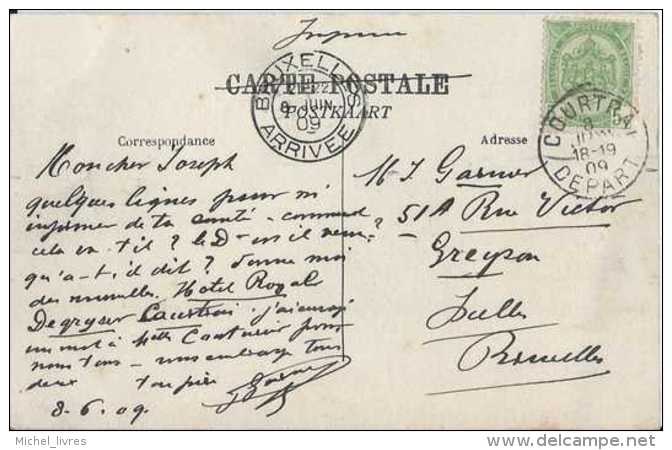 CARTE POSTALE
POSTKAART
BRUXELLES
8 JUIN
09
ARRIVÉE
COURTRAI
18-19
09
DEPART
Correspondance
Adresse
Mon cher Joseph
quelques lignes pour m'
informer de ta santé - comment
cela va t-il ? le Dr est il venu ?
qu'a-t-il dit ? donne moi
des nouvelles. Hotel Royal
Degryser Courtrai. j'ai envoyé
un mot à pour
nous tous - vous embrasse tous
deux ton père
8-6-09.
M J Garnier
51A Rue Victor
Greyson
Ixelles
Bruxelles
Michel_livres
www.delcampe.net